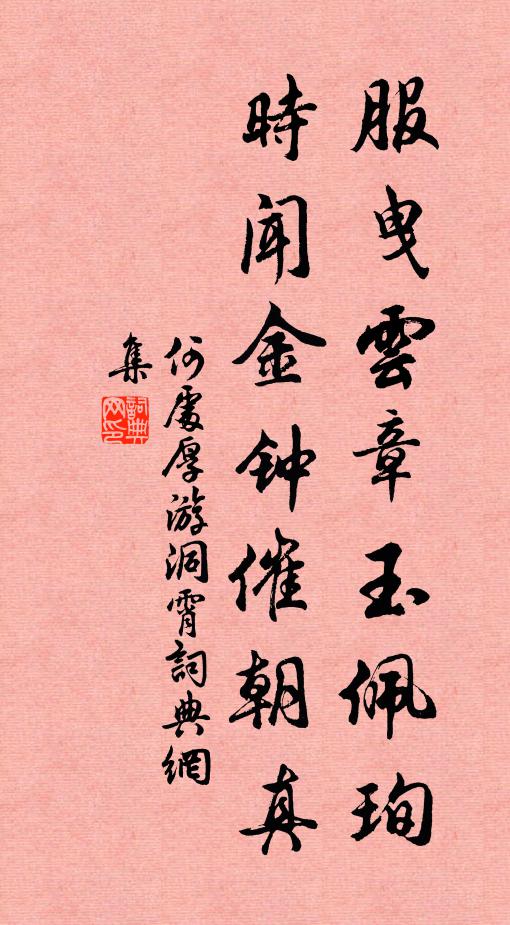 服曳雲章玉佩珣
時闻金钟催朝真
何處厚游洞霄詞典網
集
詞典
网印